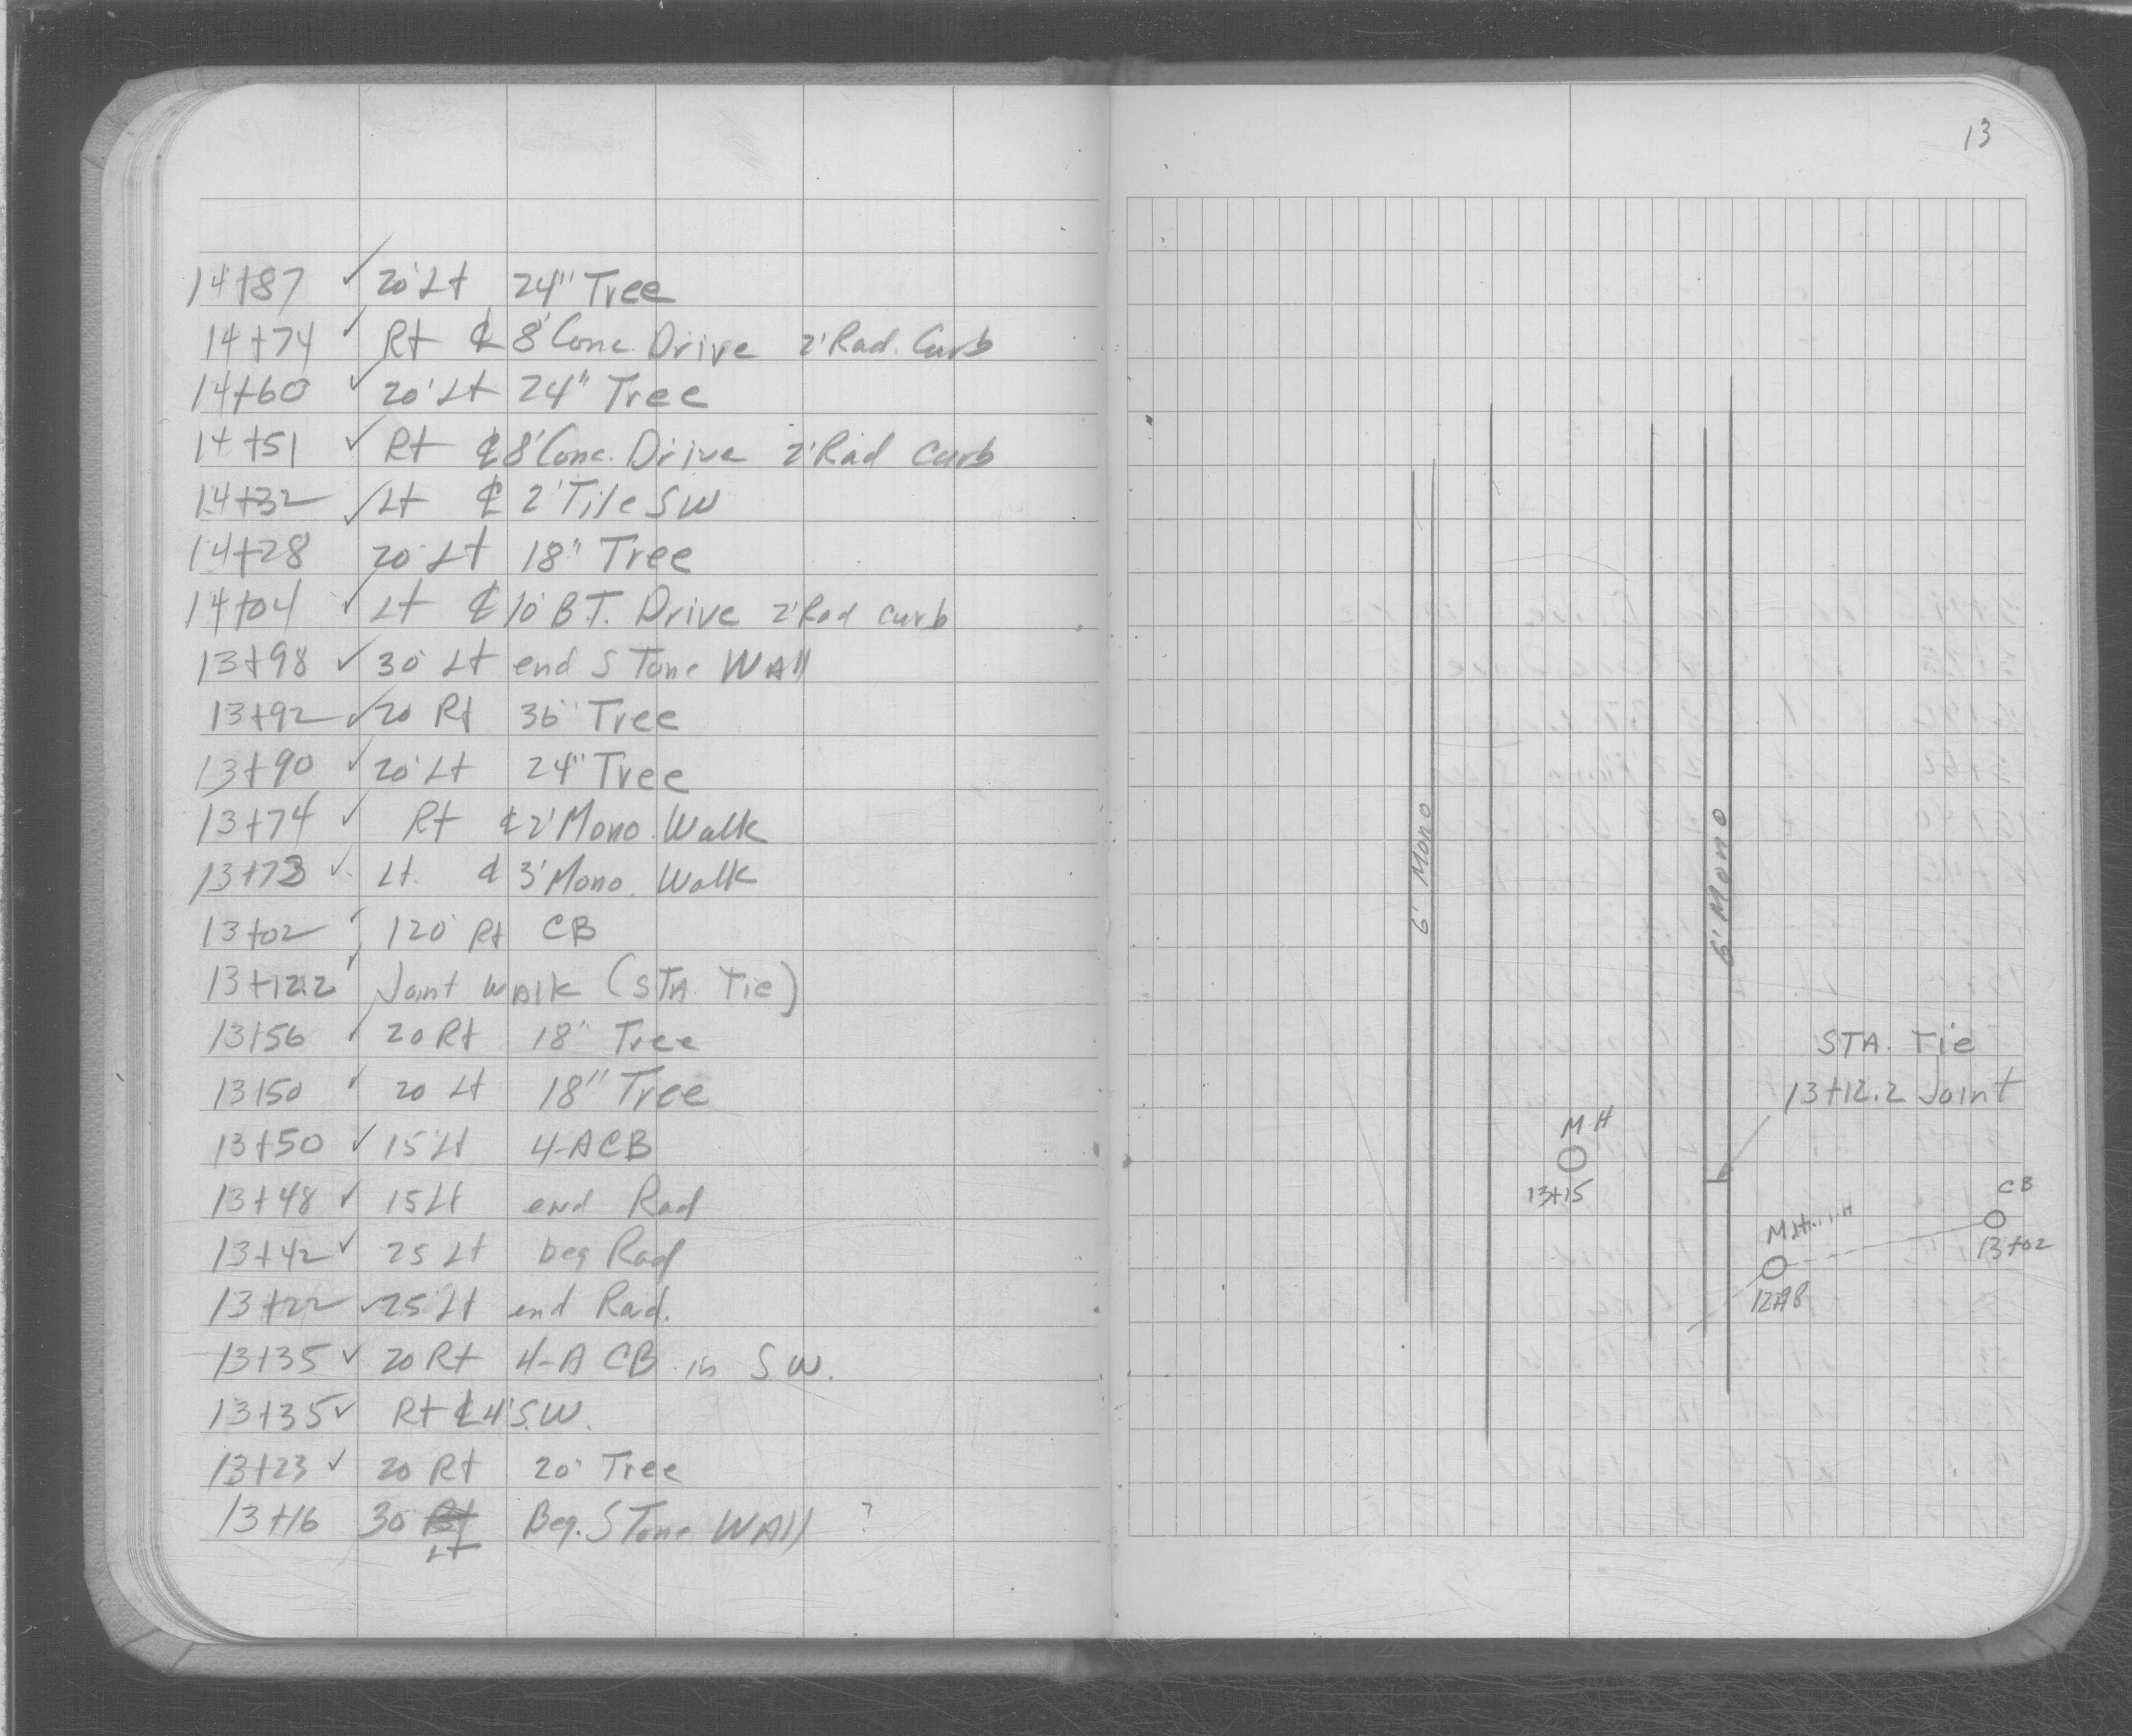 14+87 ✓ 20' Lt 24" Tree
14+74 ✓ Rt ℄ 8' Conc. Drive 2' Rad. Curb
14+60 ✓ 20' Lt 24" Tree
14+51 ✓ Rt ℄ 8' Conc. Drive 2' Rad Curb
14+32 ✓ Lt ℄ 2' Tile SW
14+28 20' Lt 18" Tree
14+04 ✓ Lt ℄ 10' B.T. Drive 2' Rad curb
13+98 ✓ 30' Lt end STone WAll
13+92 ✓ 20 Rt 36" Tree
13+90 ✓ 20' Lt 24" Tree
13+74 ✓ Rt ℄ 2' Mono. Walk
13+73 ✓ Lt. ℄ 3' Mono. Walk
13+02 ✓ 120' Rt CB
13+12.2 ✓ Joint WAlk (STA. Tie)
13+56 ✓ 20 Rt 18" Tree
13+50 ✓ 20 Lt 18" Tree
13+50 ✓ 15' Lt 4-A CB
13+48 ✓ 15 Lt end Rad
13+42 ✓ 25 Lt beg Rad
13+22 ✓ 25' Lt end Rad.
13+35 ✓ 20 Rt 4-A CB in S.W.
13+35 ✓ Rt ℄ 4' S.W.
13+23 ✓ 20 Rt 20" Tree
13+16 30 Lt Beg. STone WAll ?
13
6' Mono
6' Mono
STA. Tie
13+12.2 Joint
MH
13+15
CB
13+02
12+98